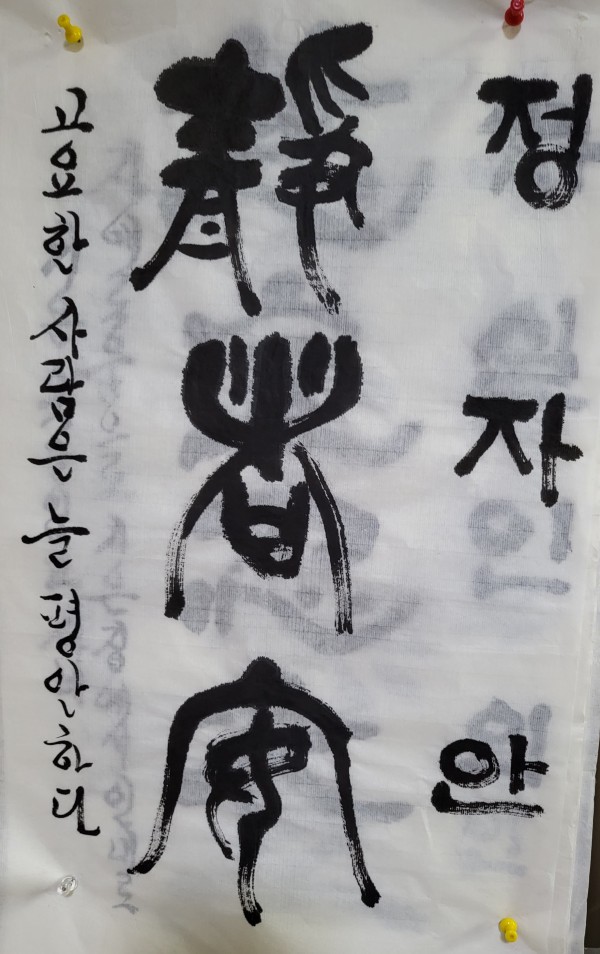 정자안
靜者安
고요한 사람은 늘 평안하다